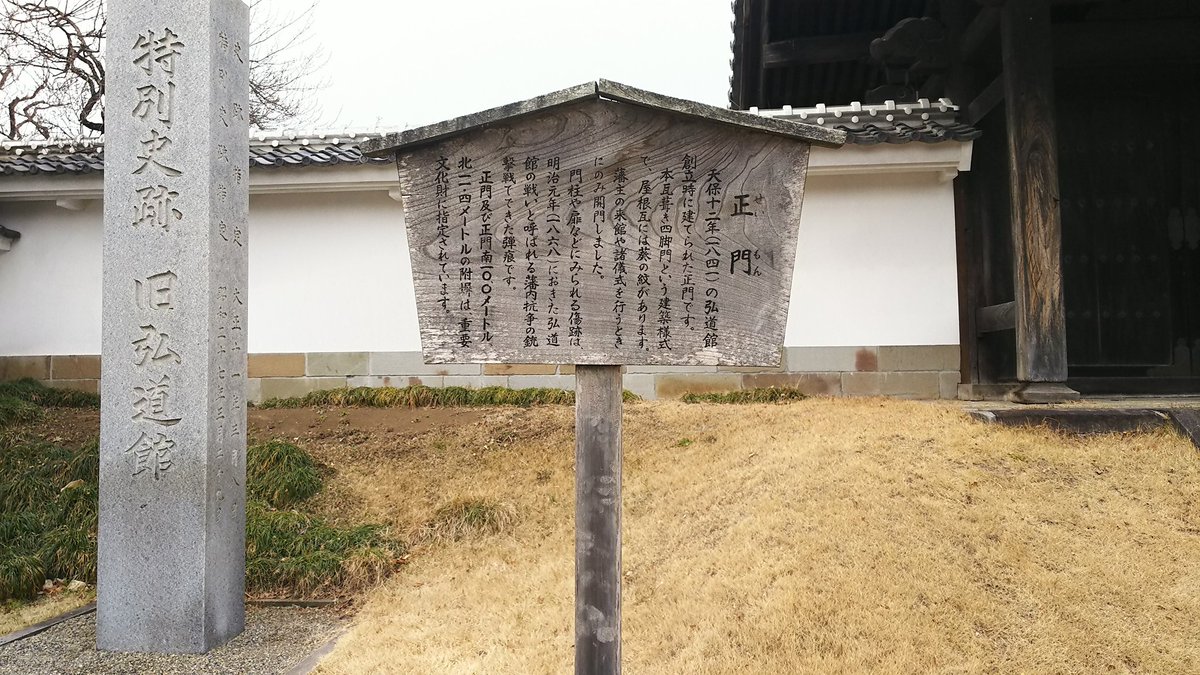 特別史跡 旧弘道館
史跡指定 大正十一年三月八日
特別史跡指定 昭和二十七年三月二十九日
正門
せいもん
天保十二年(一八四一)の弘道館
創立時に建てられた正門です。
本瓦葺き四脚門という建築様式
で、屋根瓦には葵の紋があります。
藩主の来館や諸儀式を行うとき
にのみ開門しました。
門柱や扉などにみられる傷跡は
明治元年(一八六八)におきた弘道
館の戦いと呼ばれる藩内抗争の銃
撃戦でできた弾痕です。
正門及び正門南一〇〇メートル
北一一・四メートルの附塀は、重要
文化財に指定されています。